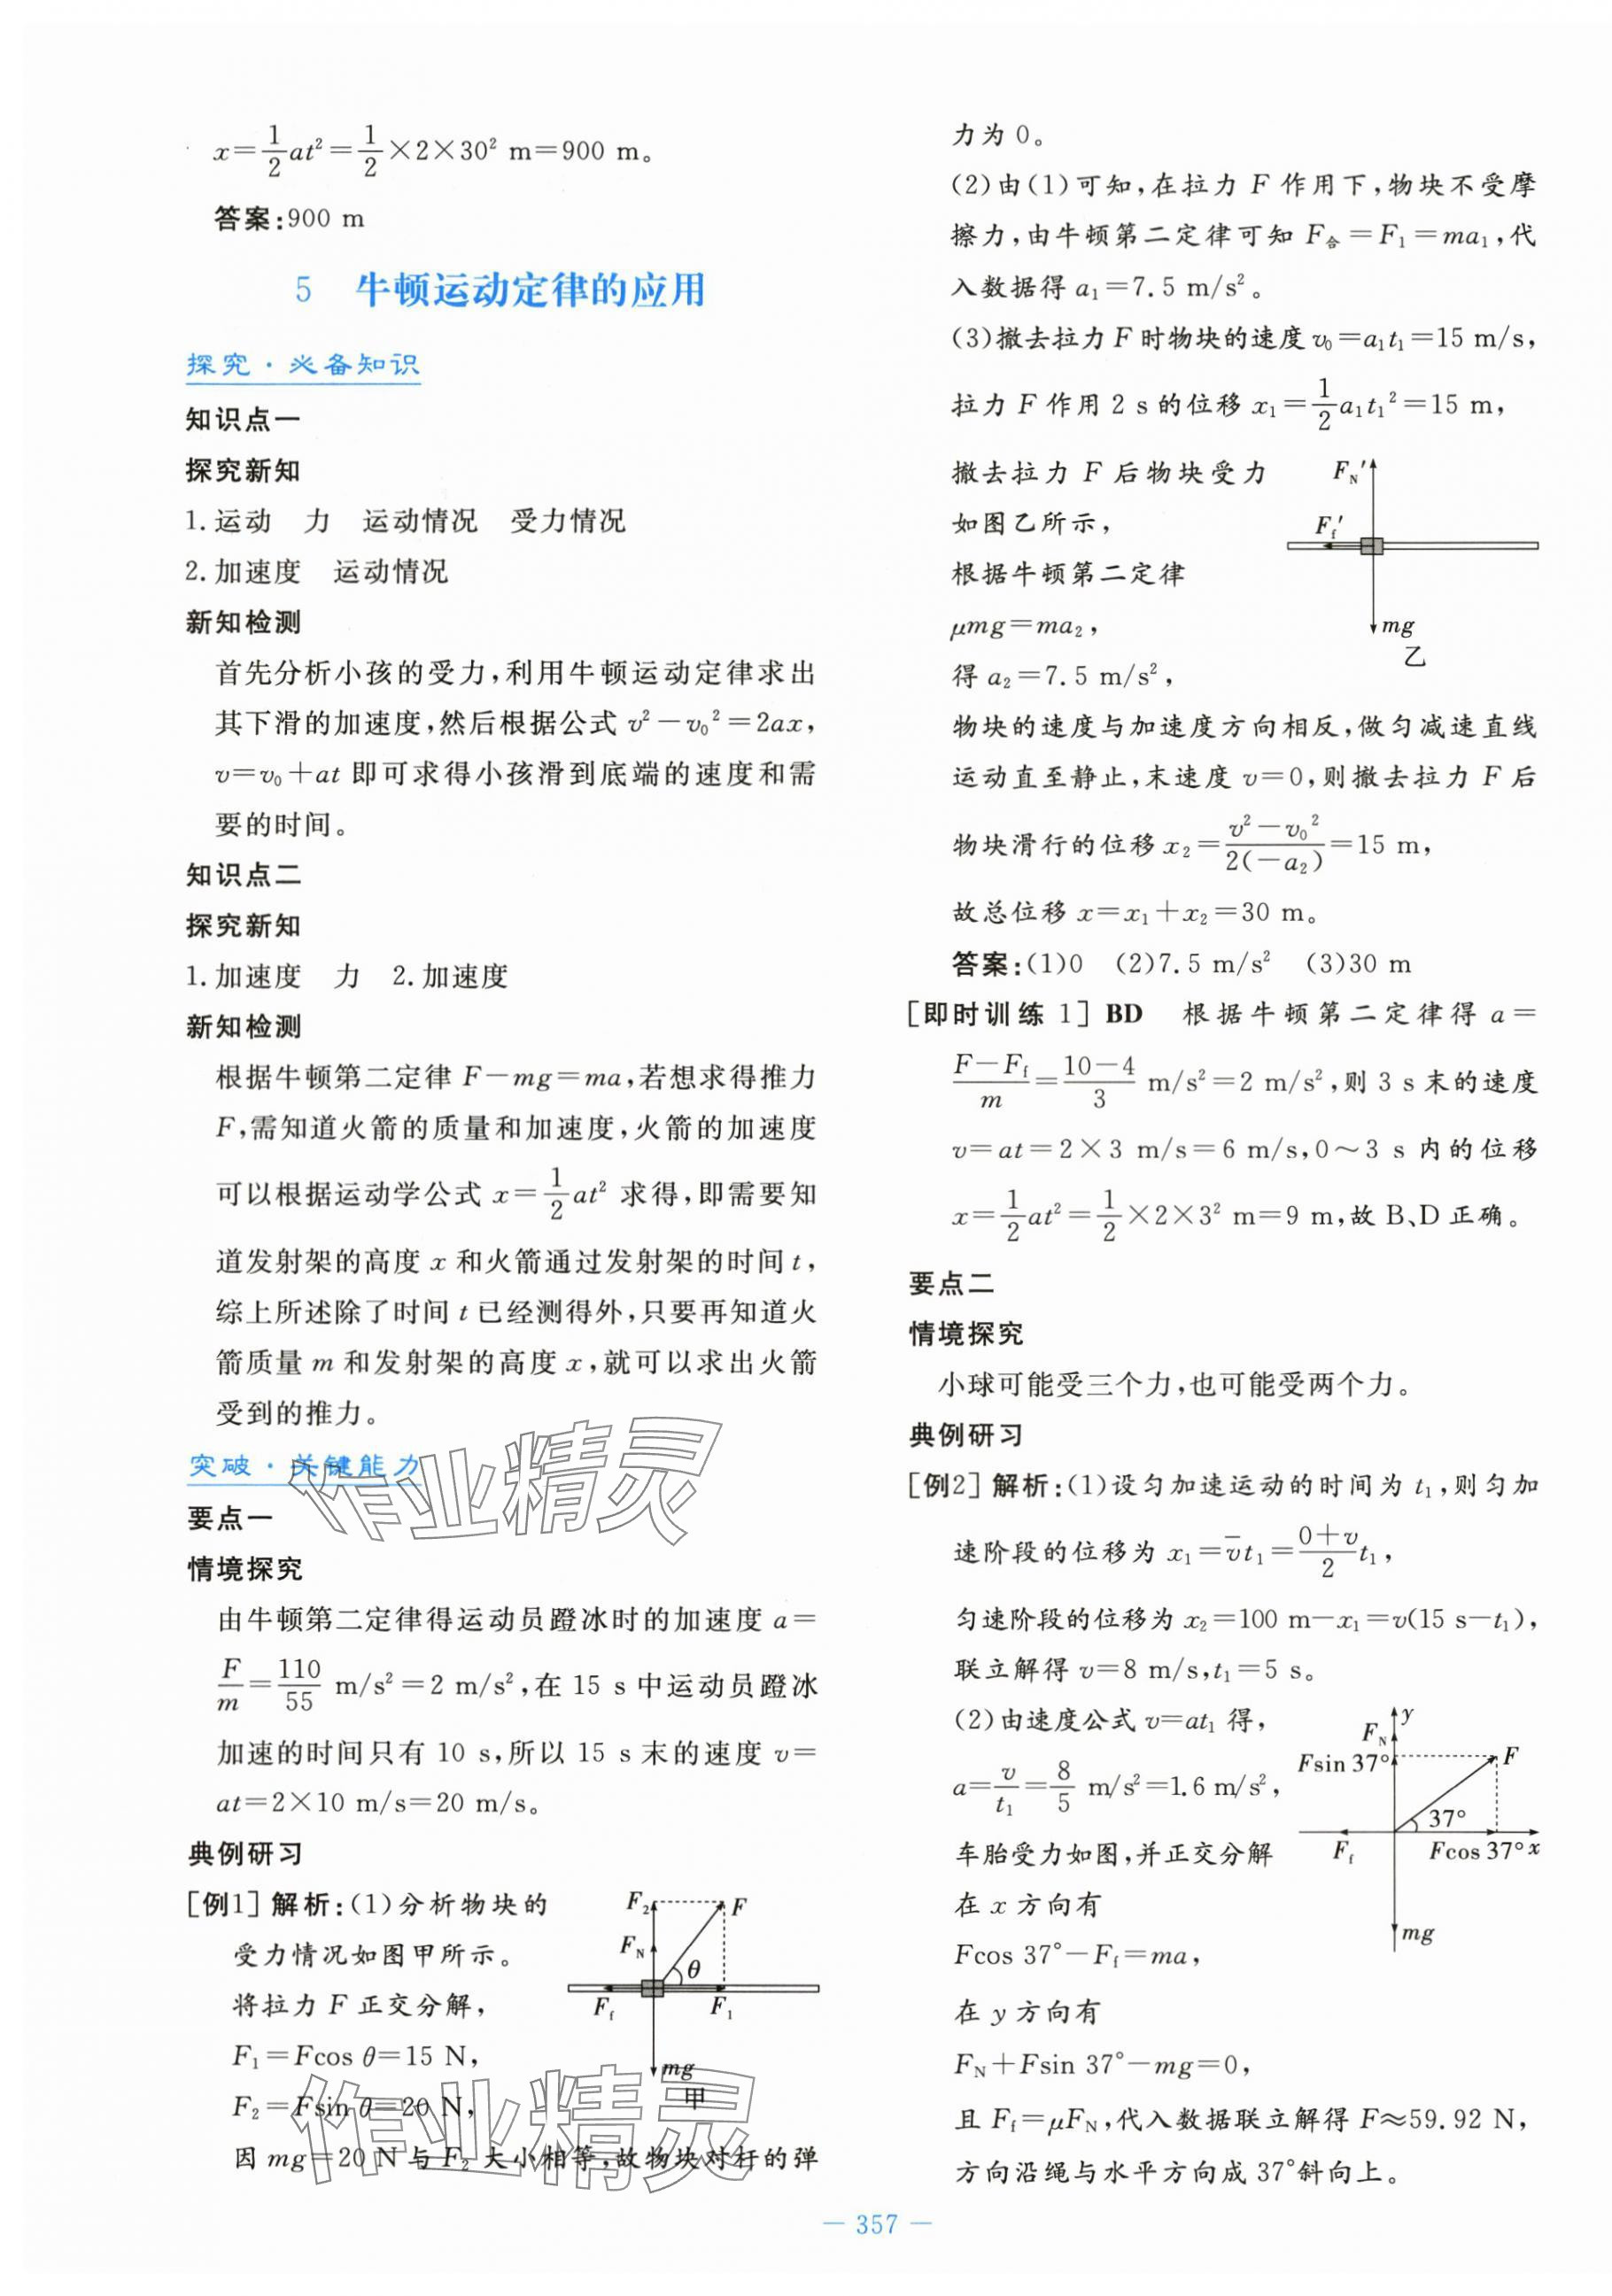 x=1/2at²=1/2×2×30² m=900 m。
答案:900 m
5 牛顿运动定律的应用
探究·必备知识
知识点一
探究新知
1.运动 力 运动情况 受力情况
2.加速度 运动情况
新知检测
首先分析小孩的受力,利用牛顿运动定律求出
其下滑的加速度,然后根据公式 v²-v₀²=2ax,
v=v₀+at 即可求得小孩滑到底端的速度和需
要的时间。
知识点二
探究新知
1.加速度 力 2.加速度
新知检测
根据牛顿第二定律 F-mg=ma,若想求得推力
F,需知道火箭的质量和加速度,火箭的加速度
可以根据运动学公式 x=1/2at² 求得,即需要知
道发射架的高度 x 和火箭通过发射架的时间 t,
综上所述除了时间 t 已经测得外,只要再知道火
箭质量 m 和发射架的高度 x,就可以求出火箭
受到的推力。
突破·关键能力
要点一
情境探究
由牛顿第二定律得运动员蹬冰时的加速度 a=
F/m=110/55 m/s²=2 m/s²,在 15 s 中运动员蹬冰
加速的时间只有 10 s,所以 15 s 末的速度 v=
at=2×10 m/s=20 m/s。
典例研习
[例1] 解析:(1)分析物块的
受力情况如图甲所示。
将拉力 F 正交分解,
F₁=Fcos θ=15 N,
F₂=Fsin θ=20 N,
因 mg=20 N 与 F₂ 大小相等,故物块对杆的弹
F₂ F
F_N
θ
F_f F₁
mg
甲
力为 0。
(2)由(1)可知,在拉力 F 作用下,物块不受摩
擦力,由牛顿第二定律可知 F合=F₁=ma₁,代
入数据得 a₁=7.5 m/s²。
(3)撤去拉力 F 时物块的速度 v₀=a₁t₁=15 m/s,
拉力 F 作用 2 s 的位移 x₁=1/2a₁t₁²=15 m,
撤去拉力 F 后物块受力
如图乙所示,
根据牛顿第二定律
μmg=ma₂,
得 a₂=7.5 m/s²,
F_N′
F_f′
mg
乙
物块的速度与加速度方向相反,做匀减速直线
运动直至静止,末速度 v=0,则撤去拉力 F 后
物块滑行的位移 x₂=(v²-v₀²)/2(-a₂)=15 m,
故总位移 x=x₁+x₂=30 m。
答案:(1)0 (2)7.5 m/s² (3)30 m
[即时训练 1] BD 根据牛顿第二定律得 a=
(F-F_f)/m=(10-4)/3 m/s²=2 m/s²,则 3 s 末的速度
v=at=2×3 m/s=6 m/s,0～3 s 内的位移
x=1/2at²=1/2×2×3² m=9 m,故 B、D 正确。
要点二
情境探究
小球可能受三个力,也可能受两个力。
典例研习
[例2] 解析:(1)设匀加速运动的时间为 t₁,则匀加
速阶段的位移为 x₁=v̅t₁=(0+v)/2t₁,
匀速阶段的位移为 x₂=100 m-x₁=v(15 s-t₁),
联立解得 v=8 m/s,t₁=5 s。
(2)由速度公式 v=at₁ 得,
a=v/t₁=8/5 m/s²=1.6 m/s²,
车胎受力如图,并正交分解
在 x 方向有
Fcos 37°-F_f=ma,
在 y 方向有
F_N+Fsin 37°-mg=0,
且 F_f=μF_N,代入数据联立解得 F≈59.92 N,
方向沿绳与水平方向成 37°斜向上。
y
F_N
Fsin 37° F
37°
F_f Fcos 37° x
mg
作业精灵
作业精灵
— 357 —